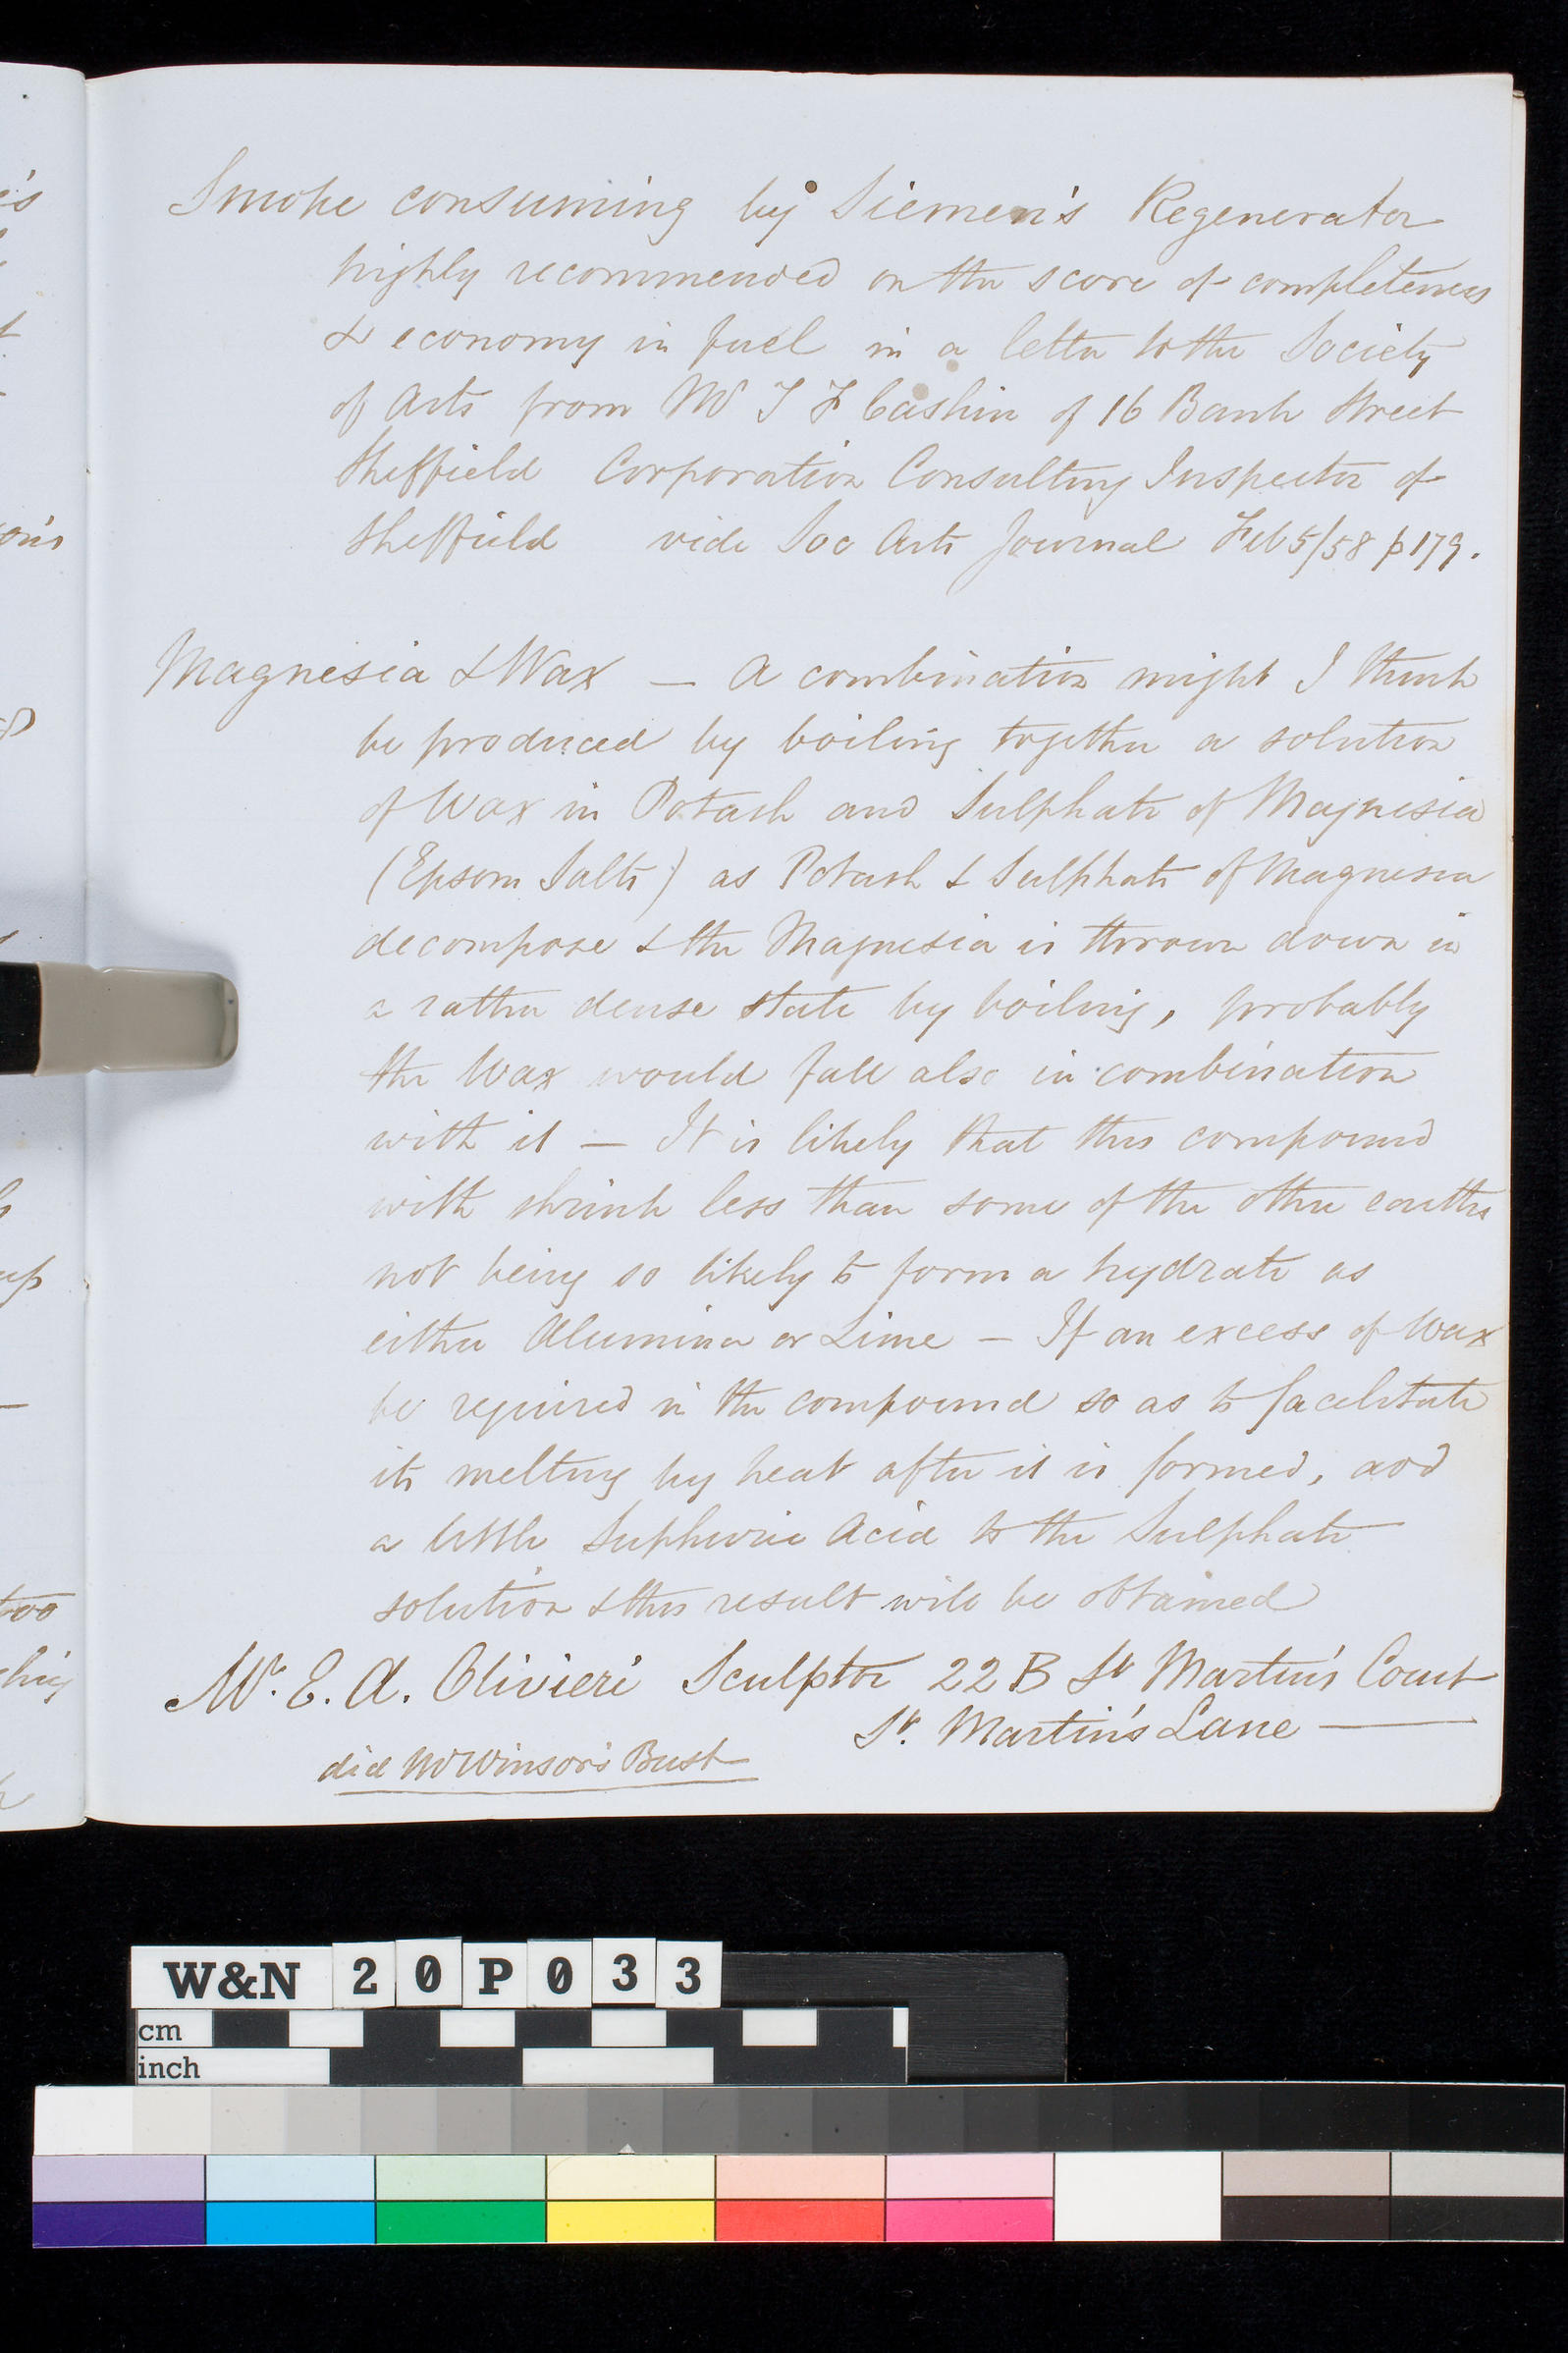 Smoke consuming by Siemen's Regenerator
highly recommended on the score of completeness
& economy in fuel in a letter to the Society
of Arts from Mr J F Cashin of 16 Bank Street
Sheffield Corporation Consulting Inspector of
Sheffield vide Soc Arts Journal Feb 5/58 p 179.
Magnesia & Wax — A combination might I think
be produced by boiling together a solution
of Wax in Potash and Sulphate of Magnesia
(Epsom Salts) as Potash & Sulphate of Magnesia
decompose & the Magnesia is thrown down in
a rather dense state by boiling, probably
the Wax would fall also in combination
with it — It is likely that this compound
with shrink less than some of the other earths
not being so likely to form a hydrate as
either Alumina or Lime — If an excess of Wax
be required in the compound so as to facilitate
its melting by heat after it is formed, add
a little Suphuric Acid to the Sulphate
solution & this result will be obtained
Mr. E. A. Olivieri Sculptor 22 B St Martin's Court
St. Martin's Lane —
did Mr Winsor's Bust
W&N 20P033
cm
inch